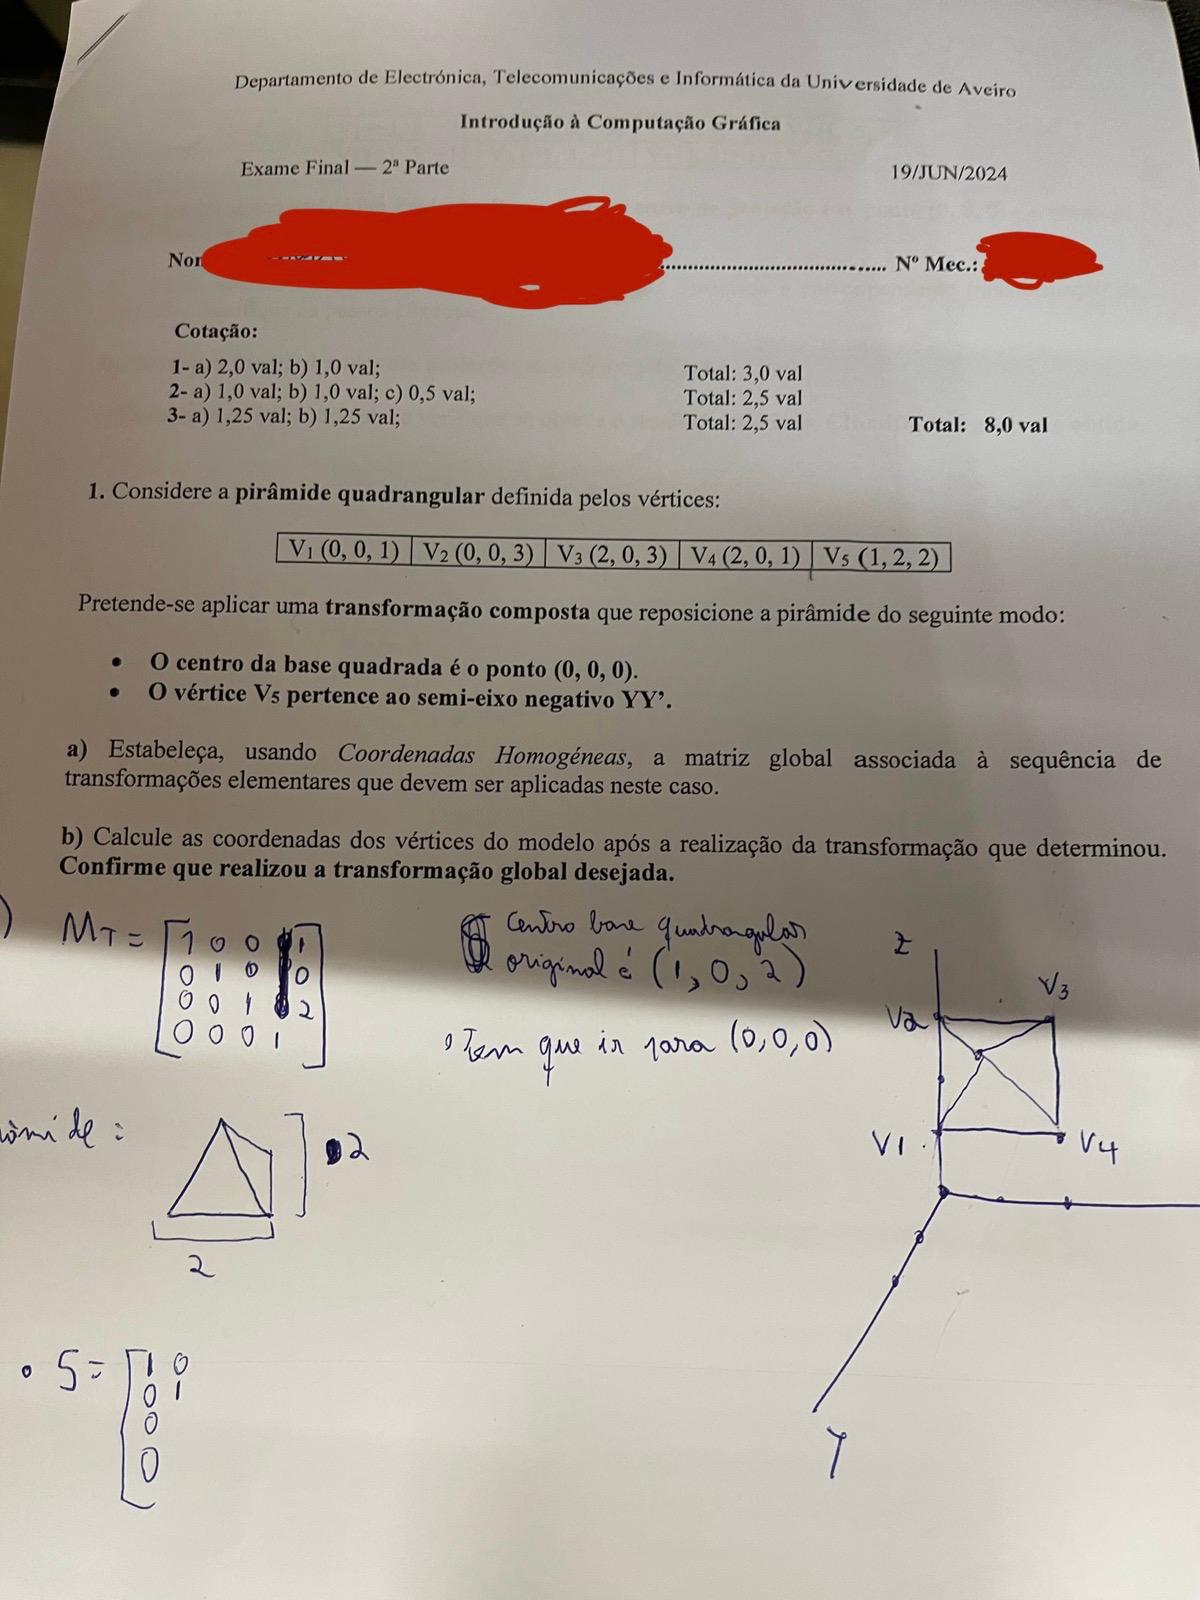 Departamento de Electrónica, Telecomunicações e Informática da Universidade de Aveiro
Introdução à Computação Gráfica
Exame Final — 2ª Parte
19/JUN/2024
Nº Mec.:
Cotação:
1- a) 2,0 val; b) 1,0 val; Total: 3,0 val
2- a) 1,0 val; b) 1,0 val; c) 0,5 val; Total: 2,5 val
3- a) 1,25 val; b) 1,25 val; Total: 2,5 val Total: 8,0 val
1. Considere a pirâmide quadrangular definida pelos vértices:
V1 (0, 0, 1) V2 (0, 0, 3) V3 (2, 0, 3) V4 (2, 0, 1) V5 (1, 2, 2)
Pretende-se aplicar uma transformação composta que reposicione a pirâmide do seguinte modo:
• O centro da base quadrada é o ponto (0, 0, 0).
• O vértice V5 pertence ao semi-eixo negativo YY’.
a) Estabeleça, usando Coordenadas Homogéneas, a matriz global associada à sequência de
transformações elementares que devem ser aplicadas neste caso.
b) Calcule as coordenadas dos vértices do modelo após a realização da transformação que determinou.
Confirme que realizou a transformação global desejada.
MT =
1 0 0 1
0 1 0 0
0 0 1 2
0 0 0 1
Centro base quadrangular
original é (1, 0, 2)
Tem que ir para (0,0,0)
Z
V2
V3
V1
V4
Y
2
2
• S =
1 0
0 1
0
0